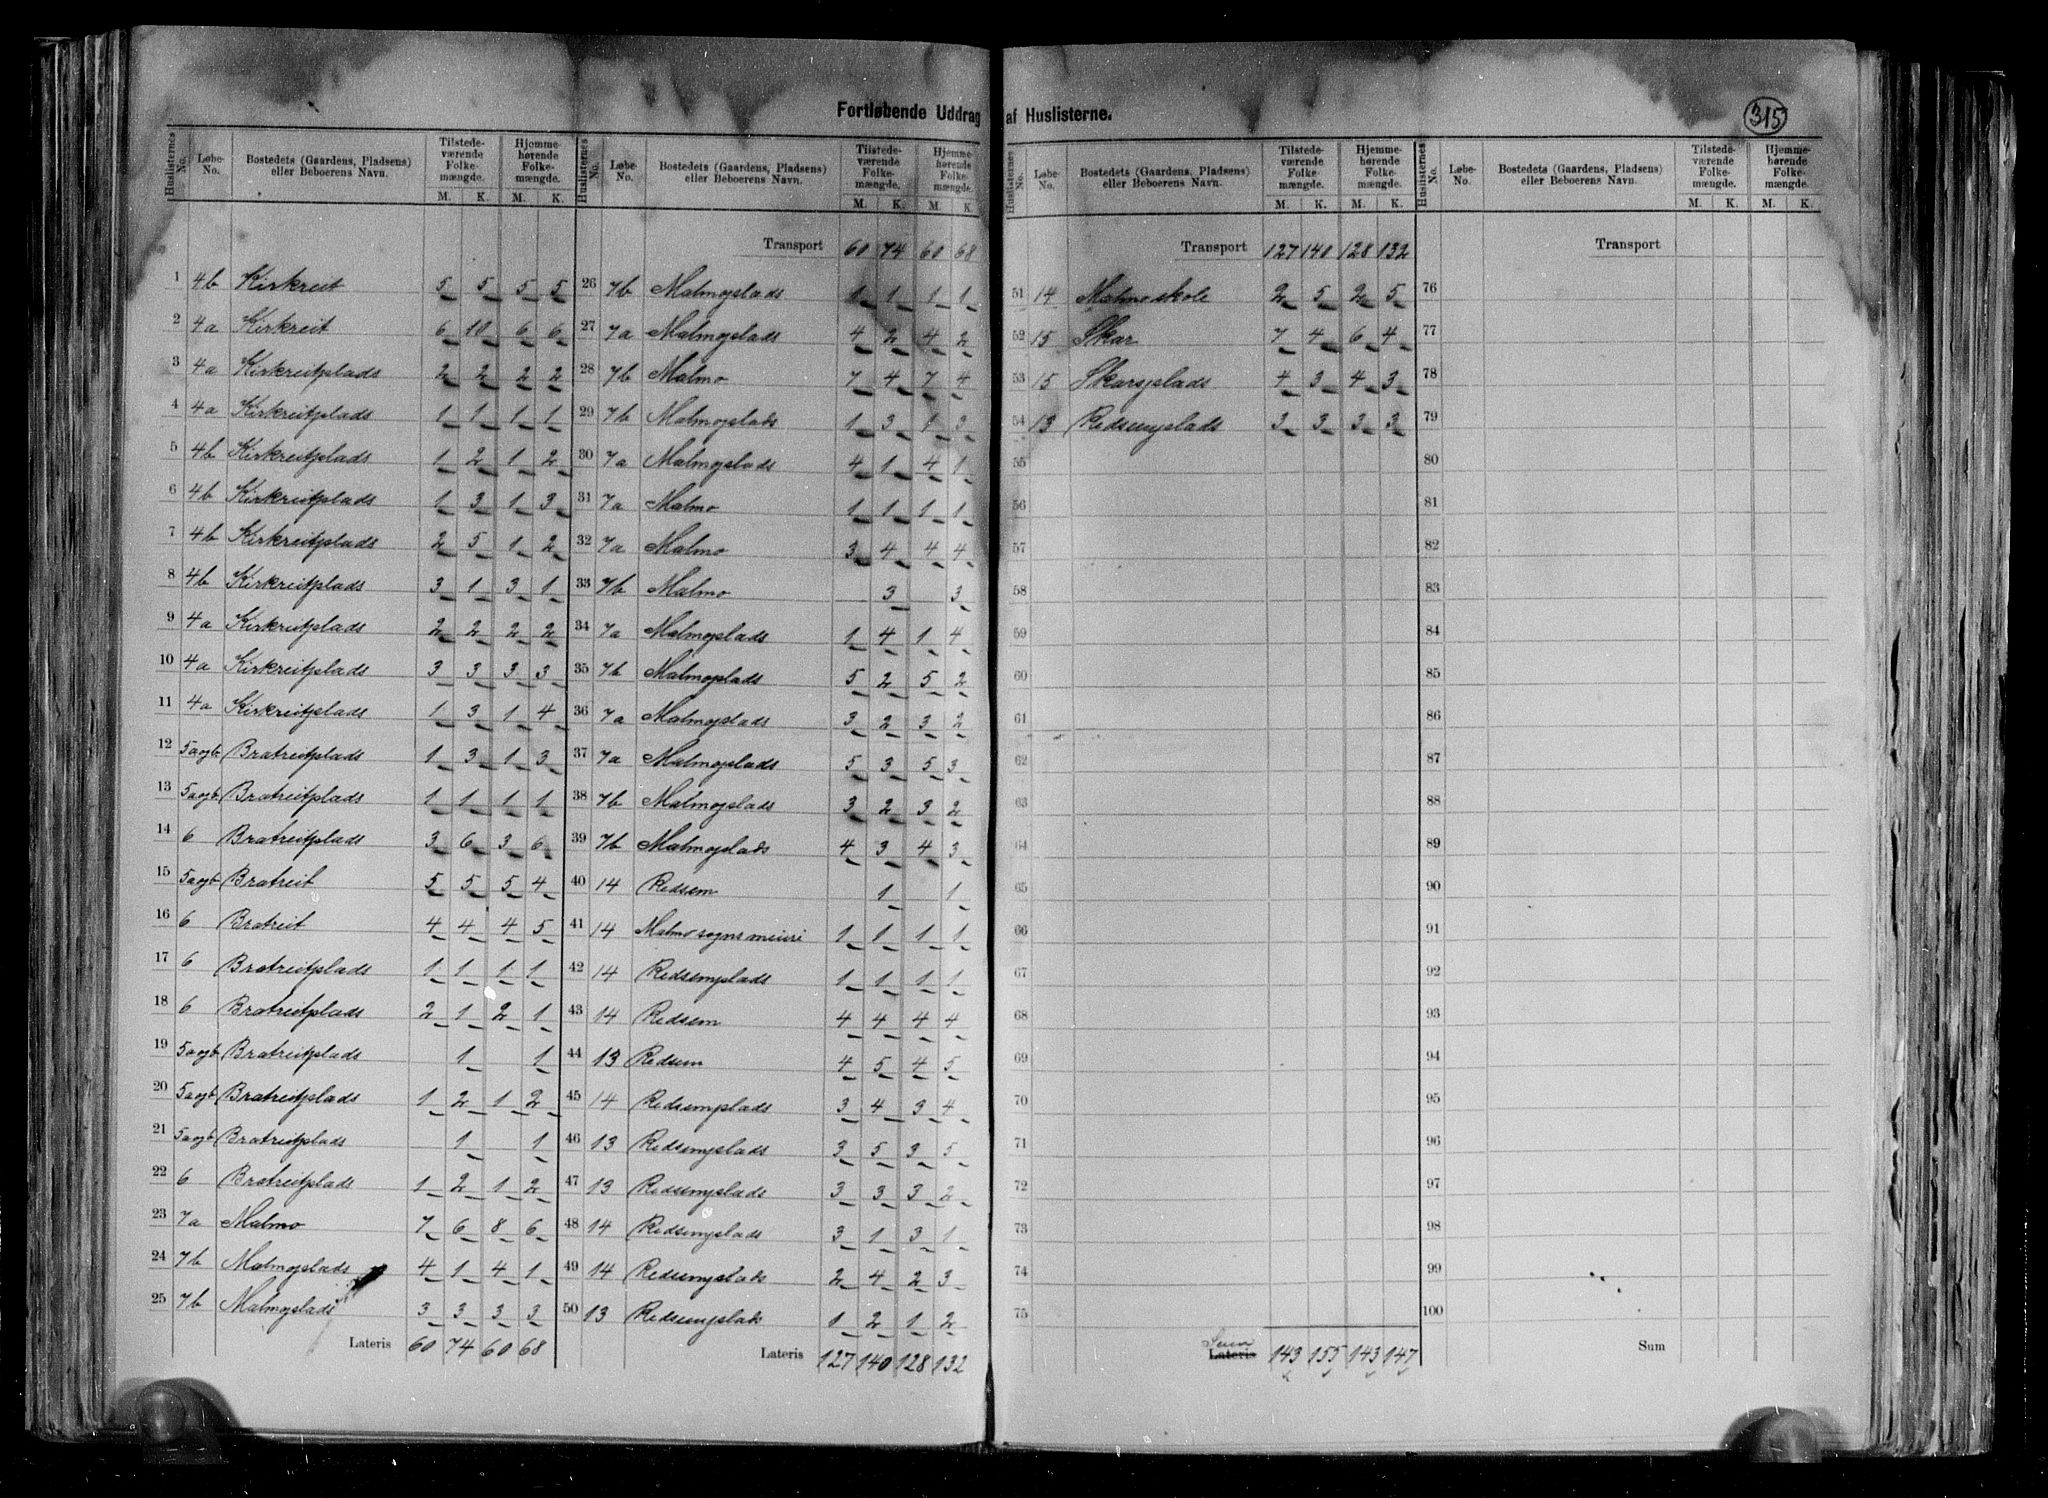 Fortløbende Uddrag af Huslisterne.
315
Huslisternes No. Løbe-No. Bostedets (Gaardens, Pladsens) eller Beboerens Navn. Tilstedeværende Folkemængde. M. K. Hjemmehørende Folkemængde. M. K.
1 4b Kirkreit 5 5 5 5
2 4a Kirkreit 6 10 6 6
3 4a Kirkreitplads 2 2 2 2
4 4a Kirkreitplads 1 1 1 1
5 4b Kirkreitplads 1 2 1 2
6 4b Kirkreitplads 1 3 1 3
7 4b Kirkreitplads 2 5 1 2
8 4b Kirkreitplads 3 1 3 1
9 4a Kirkreitplads 2 2 2 2
10 4a Kirkreitplads 3 3 3 3
11 4a Kirkreitplads 1 3 1 4
12 5aogb Bratreitplads 1 3 1 3
13 5aogb Bratreitplads 1 1 1 1
14 6 Bratreitplads 3 6 3 6
15 5aogb Bratreit 5 5 5 4
16 6 Bratreit 4 4 4 5
17 6 Bratreitplads 1 1 1 1
18 6 Bratreitplads 2 1 2 1
19 5aogb Bratreitplads 1 1
20 5aogb Bratreitplads 1 2 1 2
21 5aogb Bratreitplads 1 1
22 6 Bratreitplads 1 2 1 2
23 7a Malmo 7 6 8 6
24 7b Malmoplads 4 1 4 1
25 7b Malmoplads 3 3 3 3
Lateris 60 74 60 68
Huslisternes No. Løbe-No. Bostedets (Gaardens, Pladsens) eller Beboerens Navn. Tilstedeværende Folkemængde. M. K. Hjemmehørende Folkemængde. M. K.
Transport 60 74 60 68
26 7b Malmoplads 1 1 1 1
27 7a Malmoplads 4 2 4 2
28 7b Malmo 7 4 7 4
29 7b Malmoplads 1 3 1 3
30 7a Malmoplads 4 1 4 1
31 7a Malmo 1 1 1 1
32 7a Malmo 3 4 4 4
33 7b Malmo 3 3
34 7a Malmoplads 1 4 1 4
35 7b Malmoplads 5 2 5 2
36 7a Malmoplads 3 2 3 2
37 7a Malmoplads 5 3 5 3
38 7b Malmoplads 3 2 3 2
39 7b Malmoplads 4 3 4 3
40 14 Redsem 1 1
41 14 Malmo sogns meieri 1 1 1 1
42 14 Redsemplads 1 1 1 1
43 14 Redsem 4 4 4 4
44 13 Redsem 4 5 4 5
45 14 Redsemplads 3 4 3 4
46 13 Redsemplads 3 5 3 5
47 13 Redsemplads 3 3 3 2
48 14 Redsemplads 3 1 3 1
49 14 Redsemplads 2 4 2 3
50 13 Redsemplads 1 2 1 2
Lateris 127 140 128 132
Huslisternes No. Løbe-No. Bostedets (Gaardens, Pladsens) eller Beboerens Navn. Tilstedeværende Folkemængde. M. K. Hjemmehørende Folkemængde. M. K.
Transport 127 140 128 132
51 14 Malmo skole 2 5 2 5
52 15 Skar 7 4 6 4
53 15 Skarsplads 4 3 4 3
54 13 Redsemplads 3 3 3 3
55
56
57
58
59
60
61
62
63
64
65
66
67
68
69
70
71
72
73
74
75
Sum
Lateris 143 155 143 147
Huslisternes No. Løbe-No. Bostedets (Gaardens, Pladsens) eller Beboerens Navn. Tilstedeværende Folkemængde. M. K. Hjemmehørende Folkemængde. M. K.
Transport
76
77
78
79
80
81
82
83
84
85
86
87
88
89
90
91
92
93
94
95
96
97
98
99
100
Sum